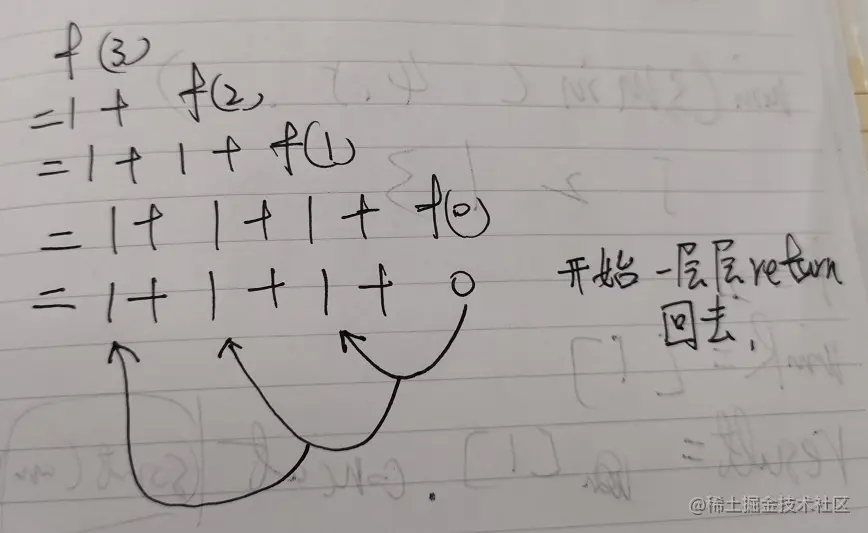 f(3)
=1+ f(2)
=1+1+f(1)
=1+1+1+f(0)
=1+1+1+0
开始一层层return
回去.
result=
@稀土掘金技术社区